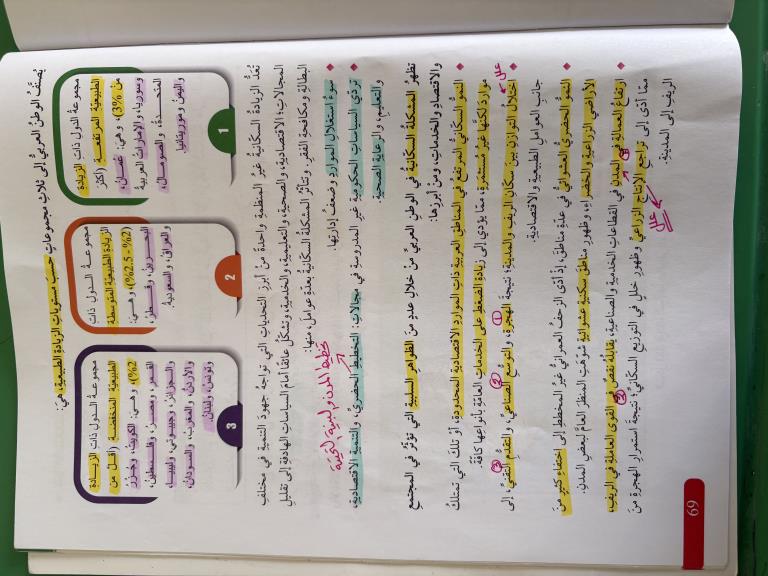 يُصنَّفُ الوطنُ العربيُّ إلى ثلاثِ مجموعاتٍ حسبَ مستوياتِ الزيادةِ الطبيعيةِ، هي:
1
مجموعةُ الدولِ ذاتِ الزيادةِ
الطبيعيّةِ المرتفعةِ (أكثر
من 3%)، وهي: عُمان،
وسوريا، والإمارات العربية
المتحدة، والصومال،
واليمن، وموريتانيا.
2
مجموعةُ الدولِ ذاتِ
الزيادةِ الطبيعيةِ المتوسطةِ
(2% - 2.5%)، وهي:
البحرين، وقطر،
والعراق، والسعودية.
3
مجموعةُ الدولِ ذاتِ الزيادةِ
الطبيعيّةِ المنخفضةِ (أقل من
2%)، وهي: الكويت، وجزر
القمر، ومصر، وفلسطين،
والجزائر، وجيبوتي، ليبيا،
والأردن، والمغرب، والسودان،
وتونس، ولبنان.
تُعَدُّ الزيادةُ السكانيةُ غيرُ المنظمةِ واحدةً من أبرزِ التحدياتِ التي تواجهُ جهودَ التنميةِ في مختلفِ
المجالاتِ؛ الاقتصاديةِ، والصحيةِ، والتعليميةِ، والخدميةِ، وتشكّلُ عائقًا أمامَ السياساتِ الهادفةِ إلى تقليلِ
البطالةِ ومكافحةِ الفقرِ. وتتأثرُ المشكلةُ السكانيةُ بعدةِ عواملَ، منها:
سوءُ استغلالِ المواردِ وضعفُ إدارتِها.
تخطيط المدن والبنية التحتية
تردّي السياساتِ الحكوميةِ غيرِ المدروسةِ في مجالاتِ: التخطيطِ الحضريِّ، والتنميةِ الاقتصاديةِ،
والتعليمِ، والرعايةِ الصحيةِ.
تظهرُ المشكلةُ السكانيةُ في الوطنِ العربيِّ من خلالِ عددٍ من الظواهرِ السلبيةِ التي تؤثرُ في المجتمعِ
والاقتصادِ والخدماتِ، ومن أبرزِها:
النموُّ السكانيُّ المرتفعُ في المناطقِ العربيةِ ذاتِ المواردِ الاقتصاديةِ المحدودةِ، أو تلكَ التي تمتلكُ
مواردَ لكنّها غيرُ مستثمرةٍ، ممّا يؤدي إلى زيادةِ الضغطِ على الخدماتِ العامةِ بأنواعِها كافةً.
علل
اختلالُ التوازنِ بينَ سكانِ الريفِ والمدينةِ؛ نتيجةَ الهجرةِ، والتوسعِ الصناعيِّ، والتقدمِ التقنيِّ، إلى
1 2 3
جانبِ العواملِ الطبيعيةِ والاقتصاديةِ.
النموُّ الحضريُّ العشوائيُّ في عدةِ مناطقَ، إذ أدّى الزحفُ العمرانيُّ غيرُ المخططِ إلى اختفاءِ كثيرٍ من
الأراضي الزراعيةِ والخضراءِ، وظهورِ مناطقَ سكنيةٍ عشوائيةٍ شوّهتِ المنظرَ العامَّ لبعضِ المدنِ.
ارتفاعُ العمالةِ في المدنِ في القطاعاتِ الخدميةِ والصناعيةِ، يقابلُه نقصٌ في القوى العاملةِ في الريفِ،
علل
ممّا أدّى إلى تراجعِ الإنتاجِ الزراعيِّ وظهورِ خللٍ في التوزيعِ السكانيِّ؛ نتيجةَ استمرارِ الهجرةِ من
الريفِ إلى المدينةِ.
69